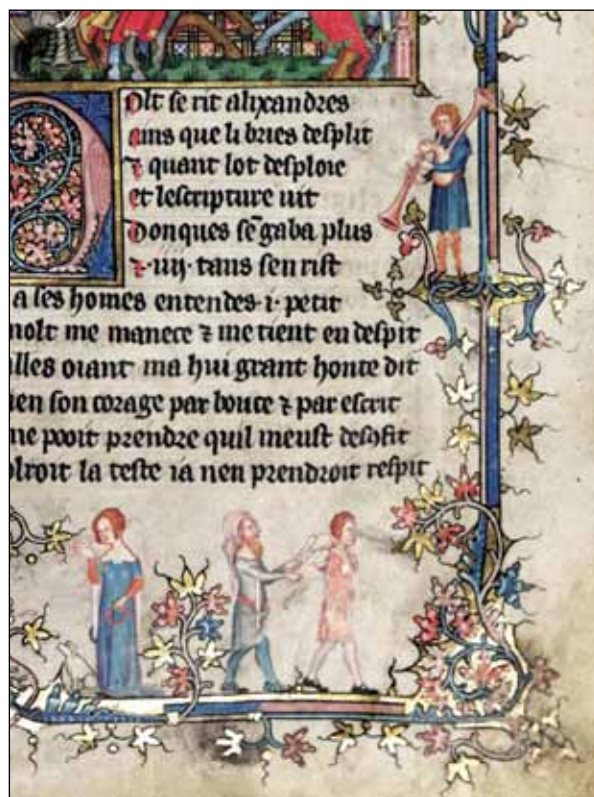 olt se rit alixandres
ains que li bries desplit
⁊ quant lot desploie
et lescripture uit
Donques sē gaba plus
⁊ ·iiij· tans sen rist
a ses homes entendes ·i· petit
molt me manece ⁊ me tient en despit
illes oiant ma hui grant honte dit
ien son corage par bouce ⁊ par escrit
me pooit prendre quil meust desꝯfit
olroit la teste ia nen prendroit respit